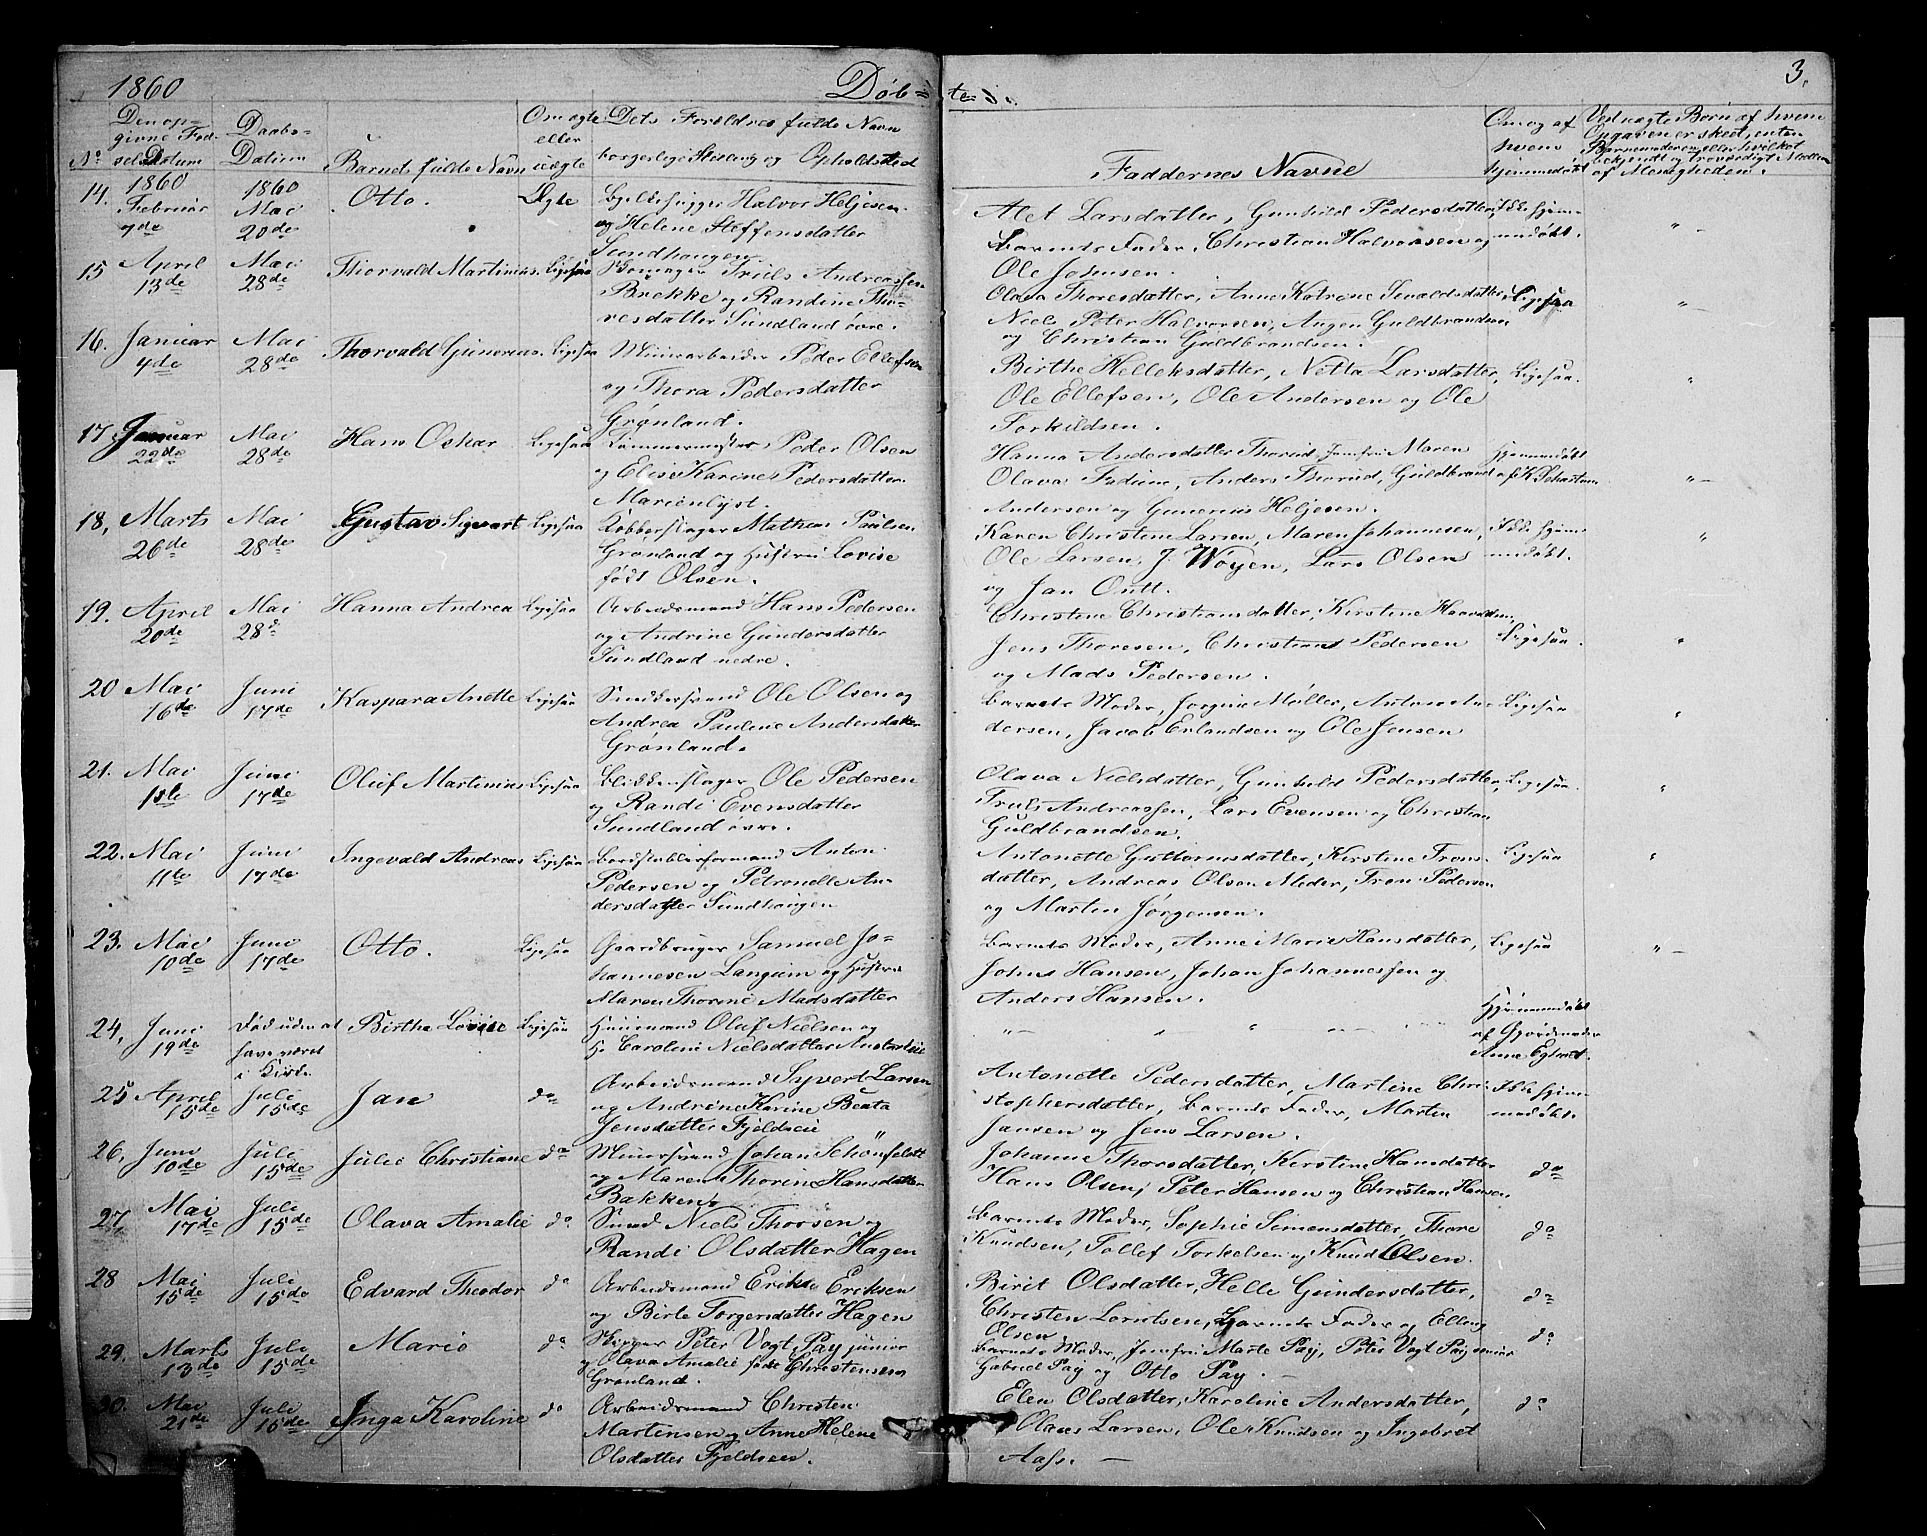 1860
Døbte
3.
No
Den opgivne Fødsels Datum
Daabs-Datum
Barnets fulde Navn
Om ægte eller uægte
Dets Forældres fulde Navn borgerlige Stilling og Opholdssted
Faddernes Navne
Om og af hvem hjemmedøbt
Ved uægte Børn af hvem Opgaven er skeet, enten Barnemoderen eller hvilket bekjendt og troværdigt Medlem af Menigheden.
14. 1860 Februar 1860 Mai 20de Otto. Ægte
Halvor Heljesen
og Helene Steffensdatter
Sundhaugen
Alet Larsdatter, Gunhild Pedersdatter,
Barnets Fader, Christian Halvorsen og
Ole Johnsen.
Ikke hjemmedøbt.
15 April 13de Mai 28de Thorvald Martinius. Ligesaa
Truls Andreassen
Brekke og Randine Thoresdatter Sundland øvre.
Olava Thoresdatter, Anne Katrine
Niels Peter Halvorsen, Guldbrandsen
og Christian Guldbrandsen.
Ligesaa
16. Januar 4de Mai 28de Thorvald Gunerius. Ligesaa
Murerarbeider Peder Ellefsen
og Thora Pedersdatter
Grønland.
Birthe Helleksdatter, Netta Larsdatter,
Ole Ellefsen, Ole Andersen og Ole
Torkildsen.
Ligesaa.
17. Januar 22de Mai 28de Hans Oskar Ligesaa
Tømmermester Peder Olsen
og Elise Karine Pedersdatter
Marienlyst.
Hanna Andersdatter Thorud, Jomfru Maren
Olava Fadum, Anders Thorud, Guldbrand
Andersen og Gunerius Heljesen.
Hjemmedøbt af K. Sebastian
18, Marts 26de Mai 28de Gustav Sigvart Ligesaa
Kobberslager Mathias Paulsen
Grønland og Hustru Lovise
født Olsen.
Karen Christine Larsen, Maren Johannesen,
Ole Larsen, J. Wøyen, Lars Olsen
og Jan
Ikke hjemmedøbt.
19. April 20de Mai 28d Hanna Andrea Ligesaa
Arbeidsmand Hans Pedersen
og Andrine Gundersdatter
Sundland nedre.
Christine Christiansdatter, Kirstine
Jens Thoresen, Christian Pedersen
og Mads Pedersen.
Ligesaa.
20 Mai 16de Juni 17de Kaspara Anette Ligesaa
Ole Olsen og
Andrea Pauline Andersdatter
Grønland.
Barnets Moder, Jørgine Møller, Andersen, Jacob Erlandsen og Ole Jensen
Ligesaa
21. Mai Juni 17de Oluf Martinius Ligesaa
Blikkenslager Ole Pedersen
og Randi Evensdatter
Sundland øvre.
Olava Nielsdatter, Gunhild Pedersdatter,
Truls Andreassen, Lars Evensen og Christian
Guldbrandsen.
Ligesaa.
22. Mai 11te Juni 17de Ingevald Andreas Ligesaa
Bordstablerformand Anton
Pedersen og Petronelle Andersdatter Sundhaugen
Antonette Guttormsdatter, Kirstine Tronsdatter, Andreas Olsen Meder, Tron Pedersen
og Martin Jørgensen.
Ligesaa
23. Mai 10de Juni 17de Otto. Ligesaa
Gaardbruger Samuel Johannesen Langum og Hustru
Maren Thorine Madsdatter
Barnets Moder, Anne Marie Hansdatter,
Johns Hansen, Johan Johannessen og
Anders Hansen.
Ligesaa
24, Juni 19de Død uden at have været i Kirke Birtha Lovise Ligesaa
Huusmand Oluf Nielsen og
H. Caroline Nielsdatter
Hjemmedøbt af Gjordmoder Anne
25 April 15de Juli 15de Jan do
Arbeidsmand Syvert Larsen
og Andrine Karine Beata
Jensdatter
Antonette Pedersdatter, Martine Christophersdatter, Barnets Fader, Martin
Jansen og Jens Larsen.
Ikke hjemmedøbt.
26, Juni 10de Juli 15de Julie Christiane do
Johan Schönfeldt
og Maren Thorine Hansdatter
Bakken.
Johanne Thorsdatter, Kirstine Hansdatter
Hans Olsen, Peter Hansen og Christian Hansen
do
27 Mai 17de Juli 15de Olava Amalie do
Smed Niels Thorsen og
Randi Olsdatter Hagen
Barnets Moder, Sophie Simensdatter, Thore
Knudsen, Tollef Torkelsen og Knud Olsen.
do
28 Mai 15de Juli 15de Edvard Theodor do
Arbeidsmand Erik Eriksen
og Birte Torgersdatter Hagen
Birit Olsdatter, Helle Gundersdatter,
Christen Lorntsen, Barnets Fader og Elling
Olsen
do
29. Marts 13de Juli 15de Marie do
Skipper Peter Vogt Pay junior
og Olava Amalie født Christensen
Grønland.
Barnets Moder, Jomfru Marte Pay, Peter Vogt Pay senior
Gabriel Pay og Otto Pay.
do
30. Mai 21de Juli 15de Inga Karoline do
Arbeidsmand Christen
Martinsen og Anne Helene
Olsdatter Fjeldseen.
Elen Olsdatter, Karoline Andersdatter,
Olaus Larsen, Ole Knudsen og Ingebret
Aass.
do